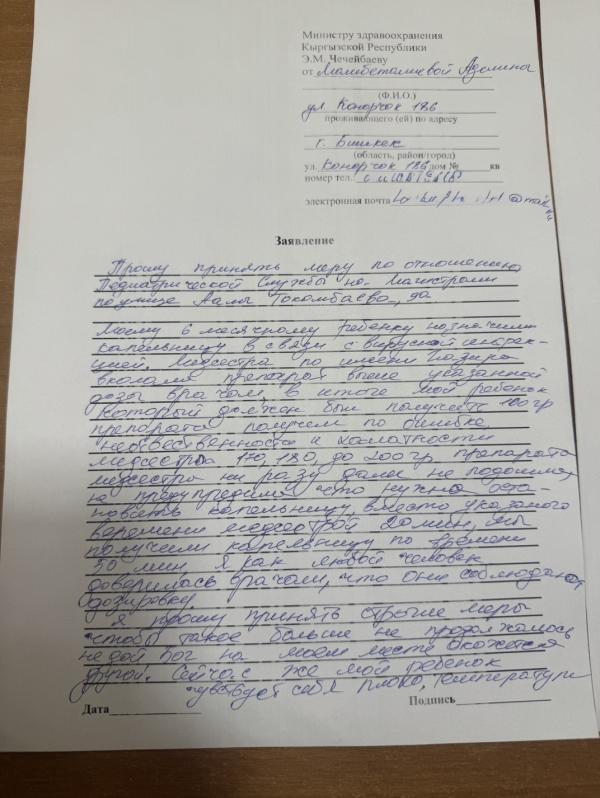 Министру здравоохранения
Кыргызской Республики
Э.М. Чечейбаеву
от Мамбеталиевой Аделины
(Ф.И.О.)
ул Конорчок 186
проживающего (ей) по адресу
г. Бишкек
(область, район/город)
ул. Конорчок 186 дом № кв
номер тел.:
электронная почта @mail
Заявление
Прошу принять меру по отношению
Педиатрической Службы на Магистрали
по улице Аалы Токомбаева, да
Моему 6 месячному ребенку назначили
капельницу в связи с вирусной инфек-
цией. Медсестра по имени
вколола препарат выше указанной
дозы врачом, в итоге мой ребенок
который должен был получить 100гр
препарата получил по ошибке,
неотвественности и халатности
медсестры 170, 180, до 200гр препарата
медсестра ни разу даже не подошла,
не предупредила что нужно оста-
новить капельницу, вместо указаного
веремени медсестрой 20 мин, мы
получили капельницу по времени
50 мин, я как любой человек
доверилась врачам, что они соблюдают
дозировку
Я прошу принять строгие меры
чтобы такое больше не продолжалось
не дай бог на моем месте окажется
другой. Сейчас же мой ребенок
чувствует себя плохо, температури
Дата Подпись